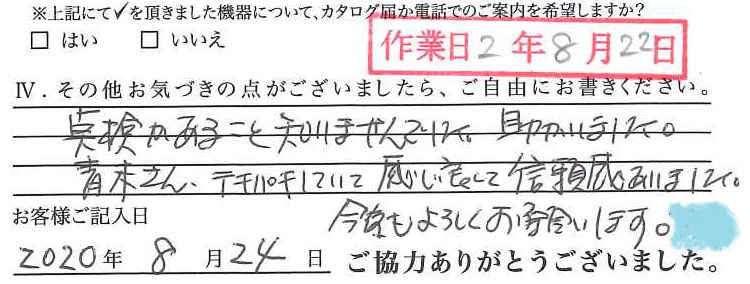 ※上記にて✓を頂きました機器について、カタログ届か電話でのご案内を希望しますか?
□ はい □ いいえ
作業日2年8月22日
Ⅳ．その他お気づきの点がございましたら、ご自由にお書きください。
点検があること知りませんでした。助かりました。
青木さん、テキパキしていて感じ良くて信頼感ありました。
今後もよろしくお願いします。
お客様ご記入日
2020年 8月24日 ご協力ありがとうございました。